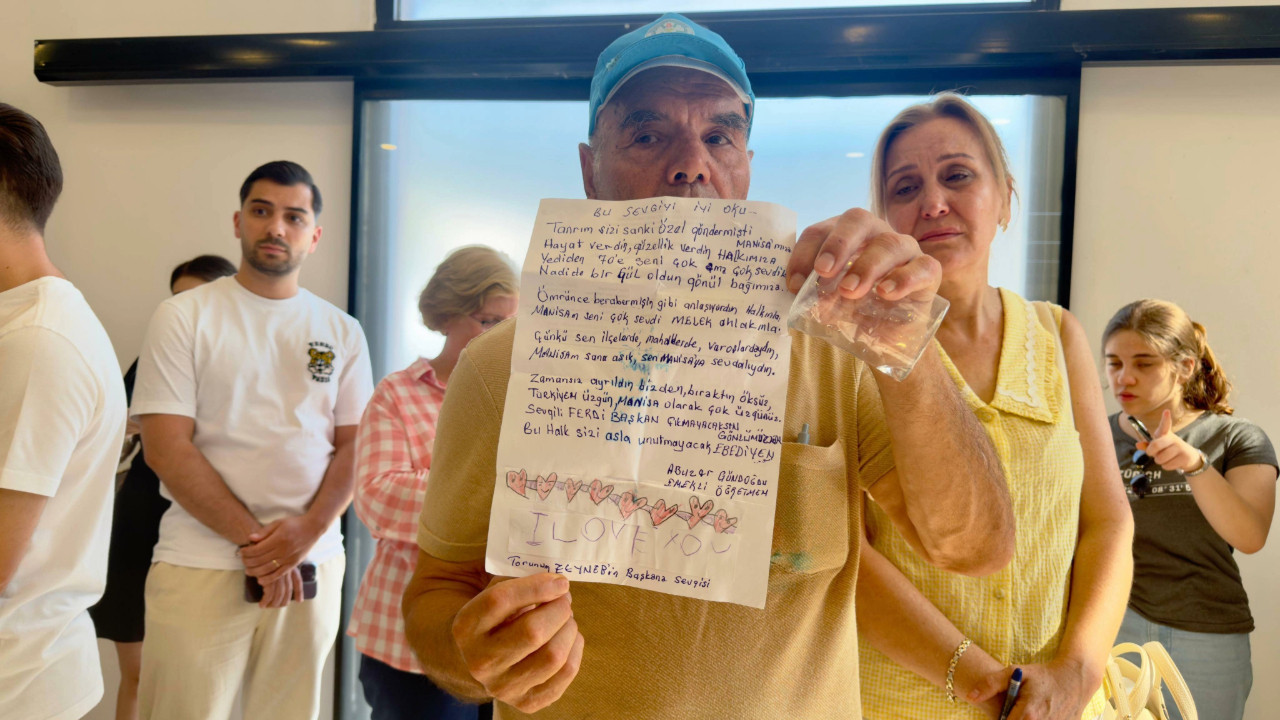 BU SEVGİYİ İYİ OKU
Tanrım sizi sanki özel göndermişti MANİSA'mıza
Hayat verdin, güzellik verdin HALKIMIZA
Yediden 70'e seni çok ama çok sevdik
Nadide bir GÜL oldun gönül bağımıza.
Ömrünce berabermişin gibi anlaşıyordun Halkımla
MANİSAM seni çok sevdi MELEK ahlakınla.
Günkü sen ilçelerde, mahallerde, varoşlardaydın,
MANİSAM sana aşık, sen MANİSA'YA sevdalıydın.
Zamansız ayrıldın bizden, bıraktın öksüz,
TÜRKİYEM üzgün, MANİSA olarak çok üzgünüz.
Sevgili FERDİ BAŞKAN ÇIKMAYACAKSIN GÖNLÜMÜZDEN
Bu Halk sizi asla unutmayacak EBEDİYEN
ABUZER GÜNDOĞDU
EMEKLİ ÖĞRETMEN
I LOVE YOU
Torunun ZEYNEB'in Başkana Sevgisi
08° 31'5